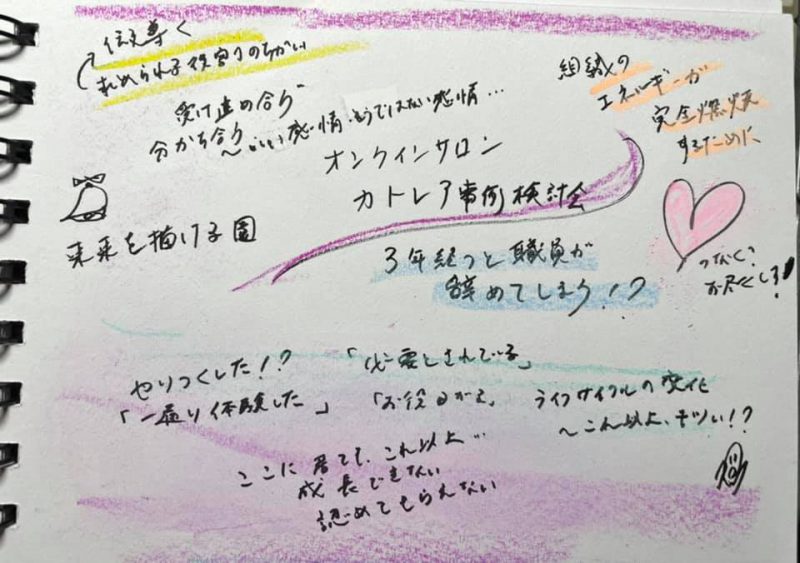 伝え導く
求められる役割のちがい
受け止め合う
分かち合う
～いい感情、そうではない感情…
オンラインサロン
カトレア事例検討会
組織の
エネルギーが
完全燃焼
するために
未来を描ける園
3年経つと職員が
辞めてしまう!?
お尽くし
やりつくした!?
「必要とされている」
「一通り体験した」
「お役目がえ」
ライフサイクルの変化
～これ以上、キツい!?
ここに居ても、これ以上…
成長できない
認めてもらえない